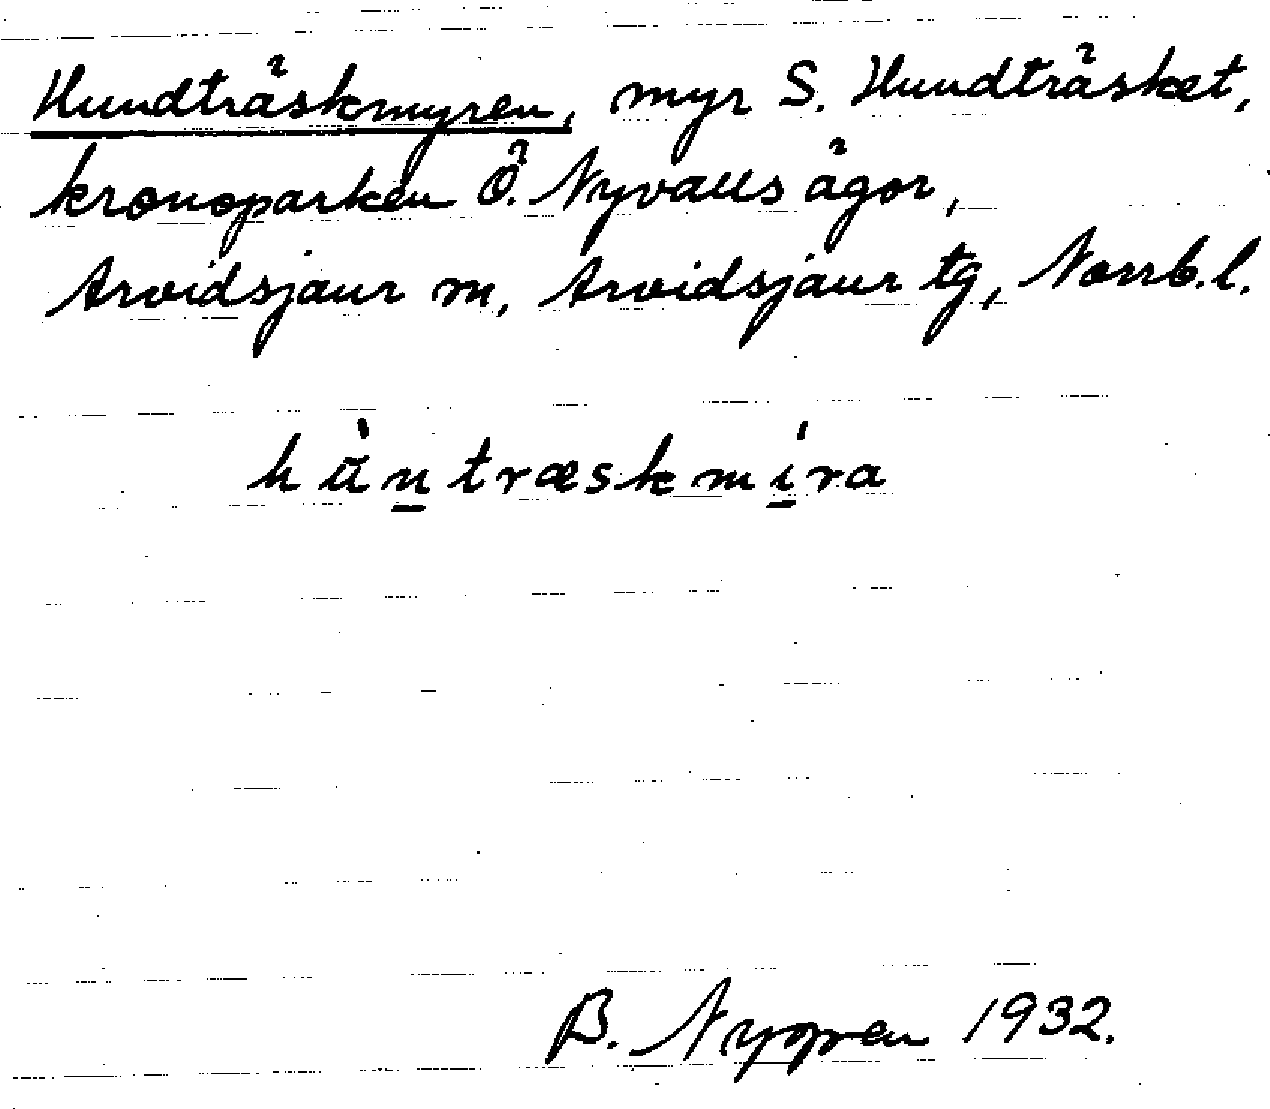 Hundträskmyren, myr S. Hundträsket,
kronoparken Ö. Nyvalls ägor,
Arvidsjaur sn, Arvidsjaur tg, Norrb.l.
hùn̲træskmi̲ra
B. Nygren 1932.